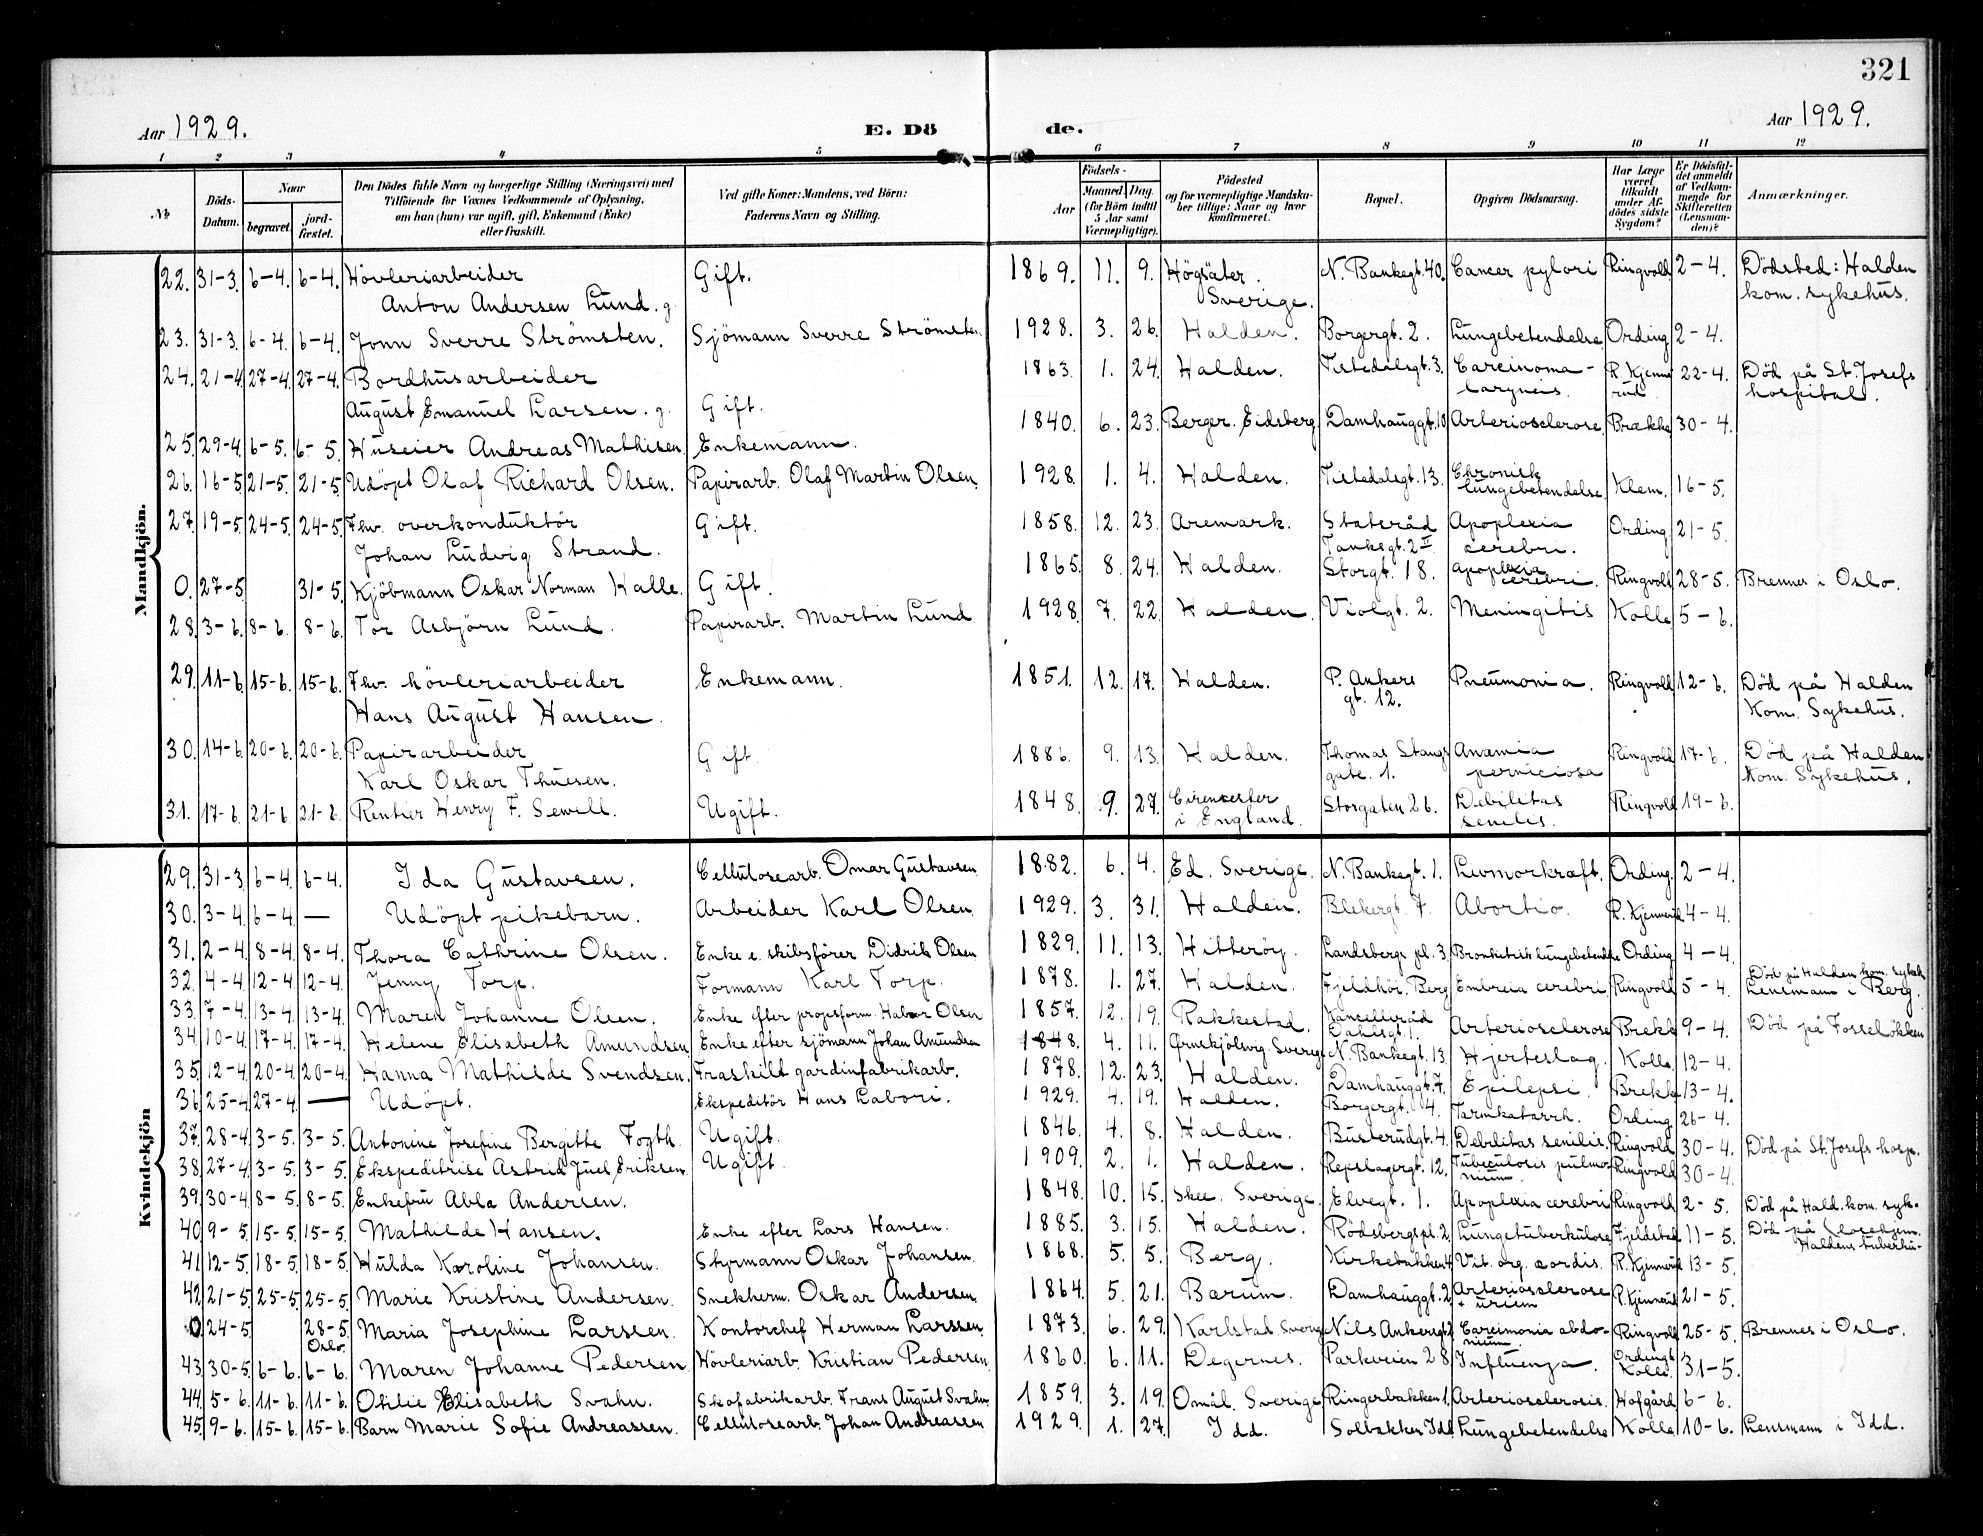 321
Aar 1929.
E. Dö de.
Aar 1929.
1 2 3 4 5 6 7 8 9 10 11 12
№ Döds-Datum. Naar begravet. jord-fæstet. Den Dödes fulde Navn og borgerlige Stilling (Næringsvei) med Tilföiende for Voxnes Vedkommende af Oplysning, om han (hun) var ugift, gift, Enkemand (Enke) eller fraskilt. Ved gifte Koner: Mandens, ved Börn: Faderens Navn og Stilling. Födsels- Aar Maaned Dag (for Börn indtil 5 Aar samt Værnepligtige). Födested og for værnepligtige Mandskaber tillige: Naar og hvor konfirmeret. Bopæl. Opgiven Dödsaarsag. Har Læge været tilkaldt under Afdödes sidste Sygdom? Er Dödsfaldet anmeldt af Vedkommende for Skifteretten (Lensmanden)? Anmærkninger.
Mandkjön.
22. 31-3. 6-4. 6-4. Hövleriarbeider Gift. 1869. 11. 9. Högsäter. N. Bankegt. 40. Cancer pylori Ringvold 2-4. Dödsted: Halden
Anton Andersen Lund. g. Sverige. kom. sykehus.
23. 31-3. 6-4. 6-4. Jonn Sverre Strömsten. Sjömann Sverre Strömsten. 1928. 3. 26. Halden. Borgergt. 2. Lungebetendelse Ording 2-4.
24. 21-4. 27-4. 27-4. Bordhusarbeider 1863. 1. 24. Halden. Tistedalsgt. 3. Carcinoma- R. Kjenne 22-4. Död på St. Josefs
August Emanuel Larsen. g. Gift. laryneis. rud. hospital.
25. 29-4. 6-5. 6-5. Huseier Andreas Mathisen. Enkemann. 1840. 6. 23. Berger. Eidsberg Damhauggt. 10 Arteriosclerose. Brække 30-4.
26. 16-5. 21-5. 21-5. Udöpt Olaf Richard Olsen. Papirarb. Olaf Martin Olsen. 1928. 1. 4. Halden. Tistedalsgt. 13. Chronisk lungebetendelse. Klem. 16-5.
27. 19-5. 24-5. 24-5. Fhv. overkonduktör Gift. 1858. 12. 23. Aremark. Statsråd Apoplexia Ording 21-5.
Johan Ludvig Strand. Tanksgt. 2 II cerebri.
0. 27-5. 31-5. Kjöbmann Oskar Norman Kalle. Gift. 1865. 8. 24. Halden. Storgt. 18. Apoplexia cerebri. Ringvold 28-5. Brennes i Oslo.
28. 3-6. 8-6. 8-6. Tor Asbjörn Lund. Papirarb. Martin Lund 1928. 7. 22. Halden. Violgt. 2. Meningitis Kolle 5-6.
29. 11-6. 15-6. 15-6. Fhv. hövleriarbeider Enkemann. 1851. 12. 17. Halden. P. Ankers Pneumonia. Ringvold 12-6. Död på Halden
Hans August Hansen. gt. 12. Kom. Sykehus.
30. 14-6. 20-6. 20-6. Papirarbeider Gift. 1886. 9. 13. Halden. Thomas Stangs Anæmia Ringvold 17-6. Död på Halden
Karl Oskar Thuesen. gate. 1. perniciosa Kom. Sykehus.
31. 17-6. 21-6. 21-6. Rentier Henry F. Sewell. Ugift. 1848. 9. 27. Cirencester Storgaten 26. Debilitas Ringvold 19-6.
i England. senilis.
Kvindekjön
29. 31-3. 6-4. 6-4. Ida Gustavsen. Cellulosearb. Omar Gustavsen 1882. 6. 4. Ed. Sverige. N. Bankegt. 1. Livmorkræft. Ording. 2-4.
30. 3-4. 6-4. — Udöpt pikebarn. Arbeider Karl Olsen. 1929. 3. 31. Halden. Blekergt. 7. Abortio. R. Kjennerud 4-4.
31. 2-4. 8-4. 8-4. Thora Cathrine Olsen. Enke e. skibsförer Didrik Olsen 1829. 11. 13. Hitteröy. Landsbergs pl. 3. Bronkitisk lungebetendelse Ording 4-4.
32. 4-4. 12-4. 12-4. Jenny Torp. Formann Karl Torp. 1878. 1. 27. Halden. Fjeldhöi. Berg Embolia cerebri Ringvold 5-4. Död på Halden kom. sykeh. Lensmann i Berg.
33. 7-4. 13-4. 13-4. Maren Johanne Olsen. Enke efter propsform. Halvor Olsen 1857. 12. 19. Rakkestad. Kancelliråd Dahlsgt. 1. Arteriosclerose Brekke 9-4. Död på Fosselökken
34. 10-4. 17-4. 17-4. Helene Elisabeth Amundsen. Enke efter sjömann Johan Amundsen 1848. 4. 11. Sverige N. Bankegt. 13. Hjerteslag. Kolle 12-4.
35. 12-4. 20-4. 20-4. Hanna Mathilde Svendsen. Fraskilt gardinfabrikarb. 1878. 12. 23. Halden. Damhauggt. 7. Epilepsi. Brekke 13-4.
36. 25-4. 27-4. — Udöpt. Ekspeditör Hans Labori. 1929. 4. 19. Halden. Borgergt. 4. Tarmkatarrh. Ording 26-4.
37. 28-4. 3-5. 3-5. Antonine Josefine Bergitte Fogth. Ugift. 1846. 4. 8. Halden. Busterudgt. 4. Debilitas senilis. Ringvold 30-4. Död på St. Josefs hosp.
38. 27-4. 3-5. 3-5. Ekspeditrise Astrid Juel Eriksen. Ugift. 1909. 2. 1. Halden. Repslagergt. 12. Tubeculosis pulmonum. Ringvold 30-4.
39. 30-4. 8-5. 8-5. Enkefru Abla Andersen. 1848. 10. 15. Skee. Sverige. Elvegt. 1. Apoplexia cerebri Ringvold 2-5. Död på Hald. kom. syk.
40. 9-5. 15-5. 15-5. Mathilde Hansen. Enke efter Lars Hansen. 1885. 3. 15. Halden. Rödsbergspl. 2 Lungetuberkulose Fjeldstad 11-5. Död på Haldens tuberku-
41. 12-5. 18-5. 18-5. Hulda Karoline Johansen. Styrmann Oskar Johansen. 1868. 5. 5. Berg. Kirkebakken 4 Vit. org. cordis. R. Kjennerud 13-5.
42. 21-5. 25-5. 25-5. Marie Kristine Andersen. Snekkerm. Oskar Andersen. 1864. 5. 21. Bærum. Damhauggt. 2 Arteriosclerose + R. Kjennerud 21-5.
0. 24-5. 28-5. Oslo. Maria Josephine Larssen. Kontorchef Herman Larssen. 1873. 6. 29. Karlstad Sverig Nils Ankersgt. Carcimonia abdominum. Ringvold 25-5. Brennes i Oslo.
43. 30-5. 6-6. 6-6. Maren Johanne Pedersen Hövleriarb. Kristian Pedersen. 1860. 6. 11. Degernes. Parkveien 28 Influenza. Ording & Kolle. 31-5.
44. 5-6. 11-6. 11-6. Otilie Elisabeth Svahn. Skofabrikarb. Frans August Svahn. 1859. 3. 19. Omål. Sverige Ringerbakken 1. Arteriosclerosis. Hofgård 6-6.
45. 9-6. 15-6. 15-6. Barn Marie Sofie Andreassen. Cellulosearb. Johan Andreassen 1929. 1. 27. Idd. Solbakken Idd Lungebetendelse Kolle 10-6. Lensmann i Idd.